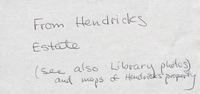 From Hendricks
Estate
(see also Library photos)
and maps of Hendricks property